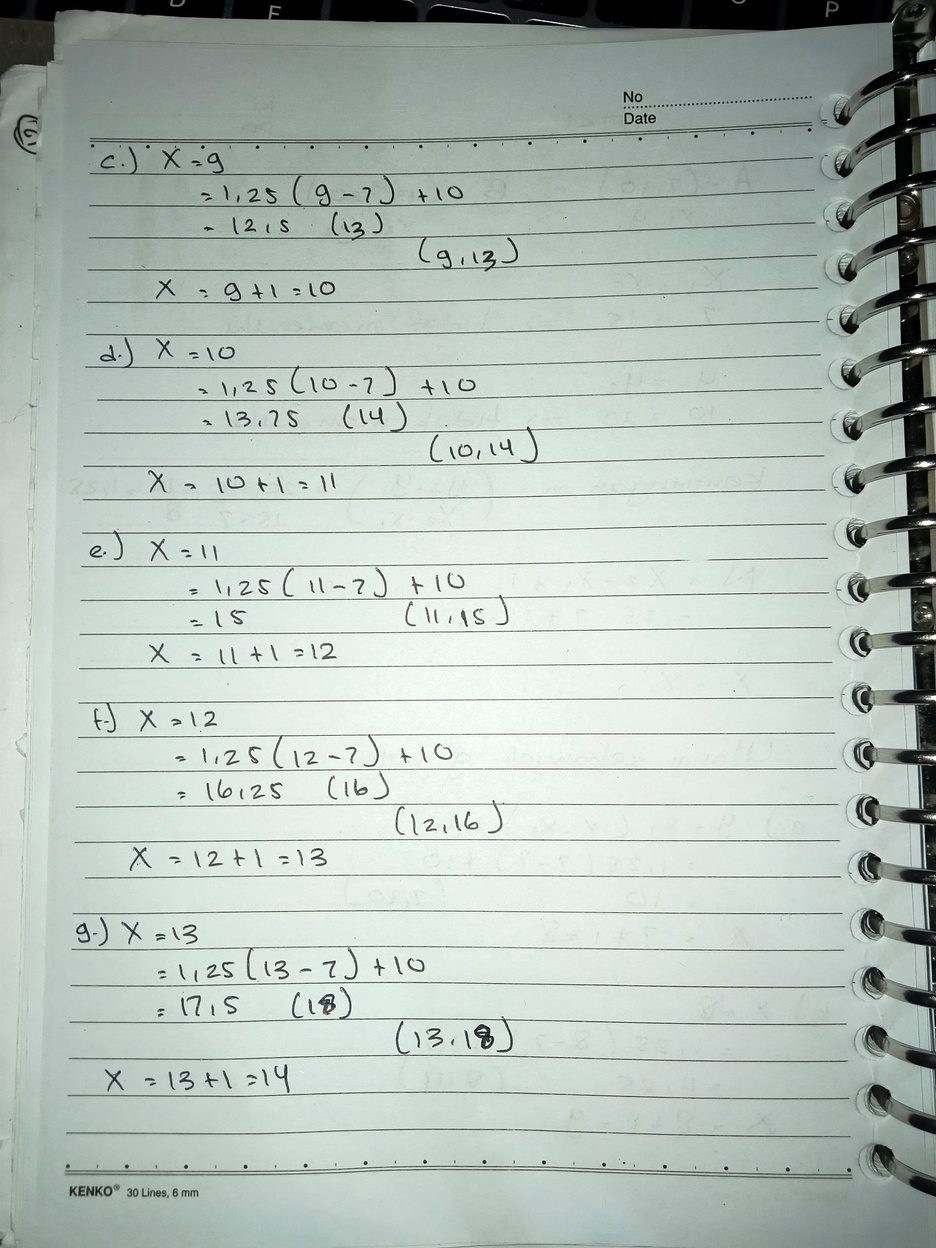 No
Date
c.) X = 9
= 1,25 (9 - 7) + 10
= 12,5 (13)
(9,13)
X = 9 + 1 = 10
d.) X = 10
= 1,25 (10 - 7) + 10
= 13,75 (14)
(10,14)
X = 10 + 1 = 11
e.) X = 11
= 1,25 (11 - 7) + 10
= 15 (11,15)
X = 11 + 1 = 12
f.) X = 12
= 1,25 (12 - 7) + 10
= 16,25 (16)
(12,16)
X = 12 + 1 = 13
g.) X = 13
= 1,25 (13 - 7) + 10
= 17,5 (18)
(13,18)
X = 13 + 1 = 14
KENKO® 30 Lines, 6 mm